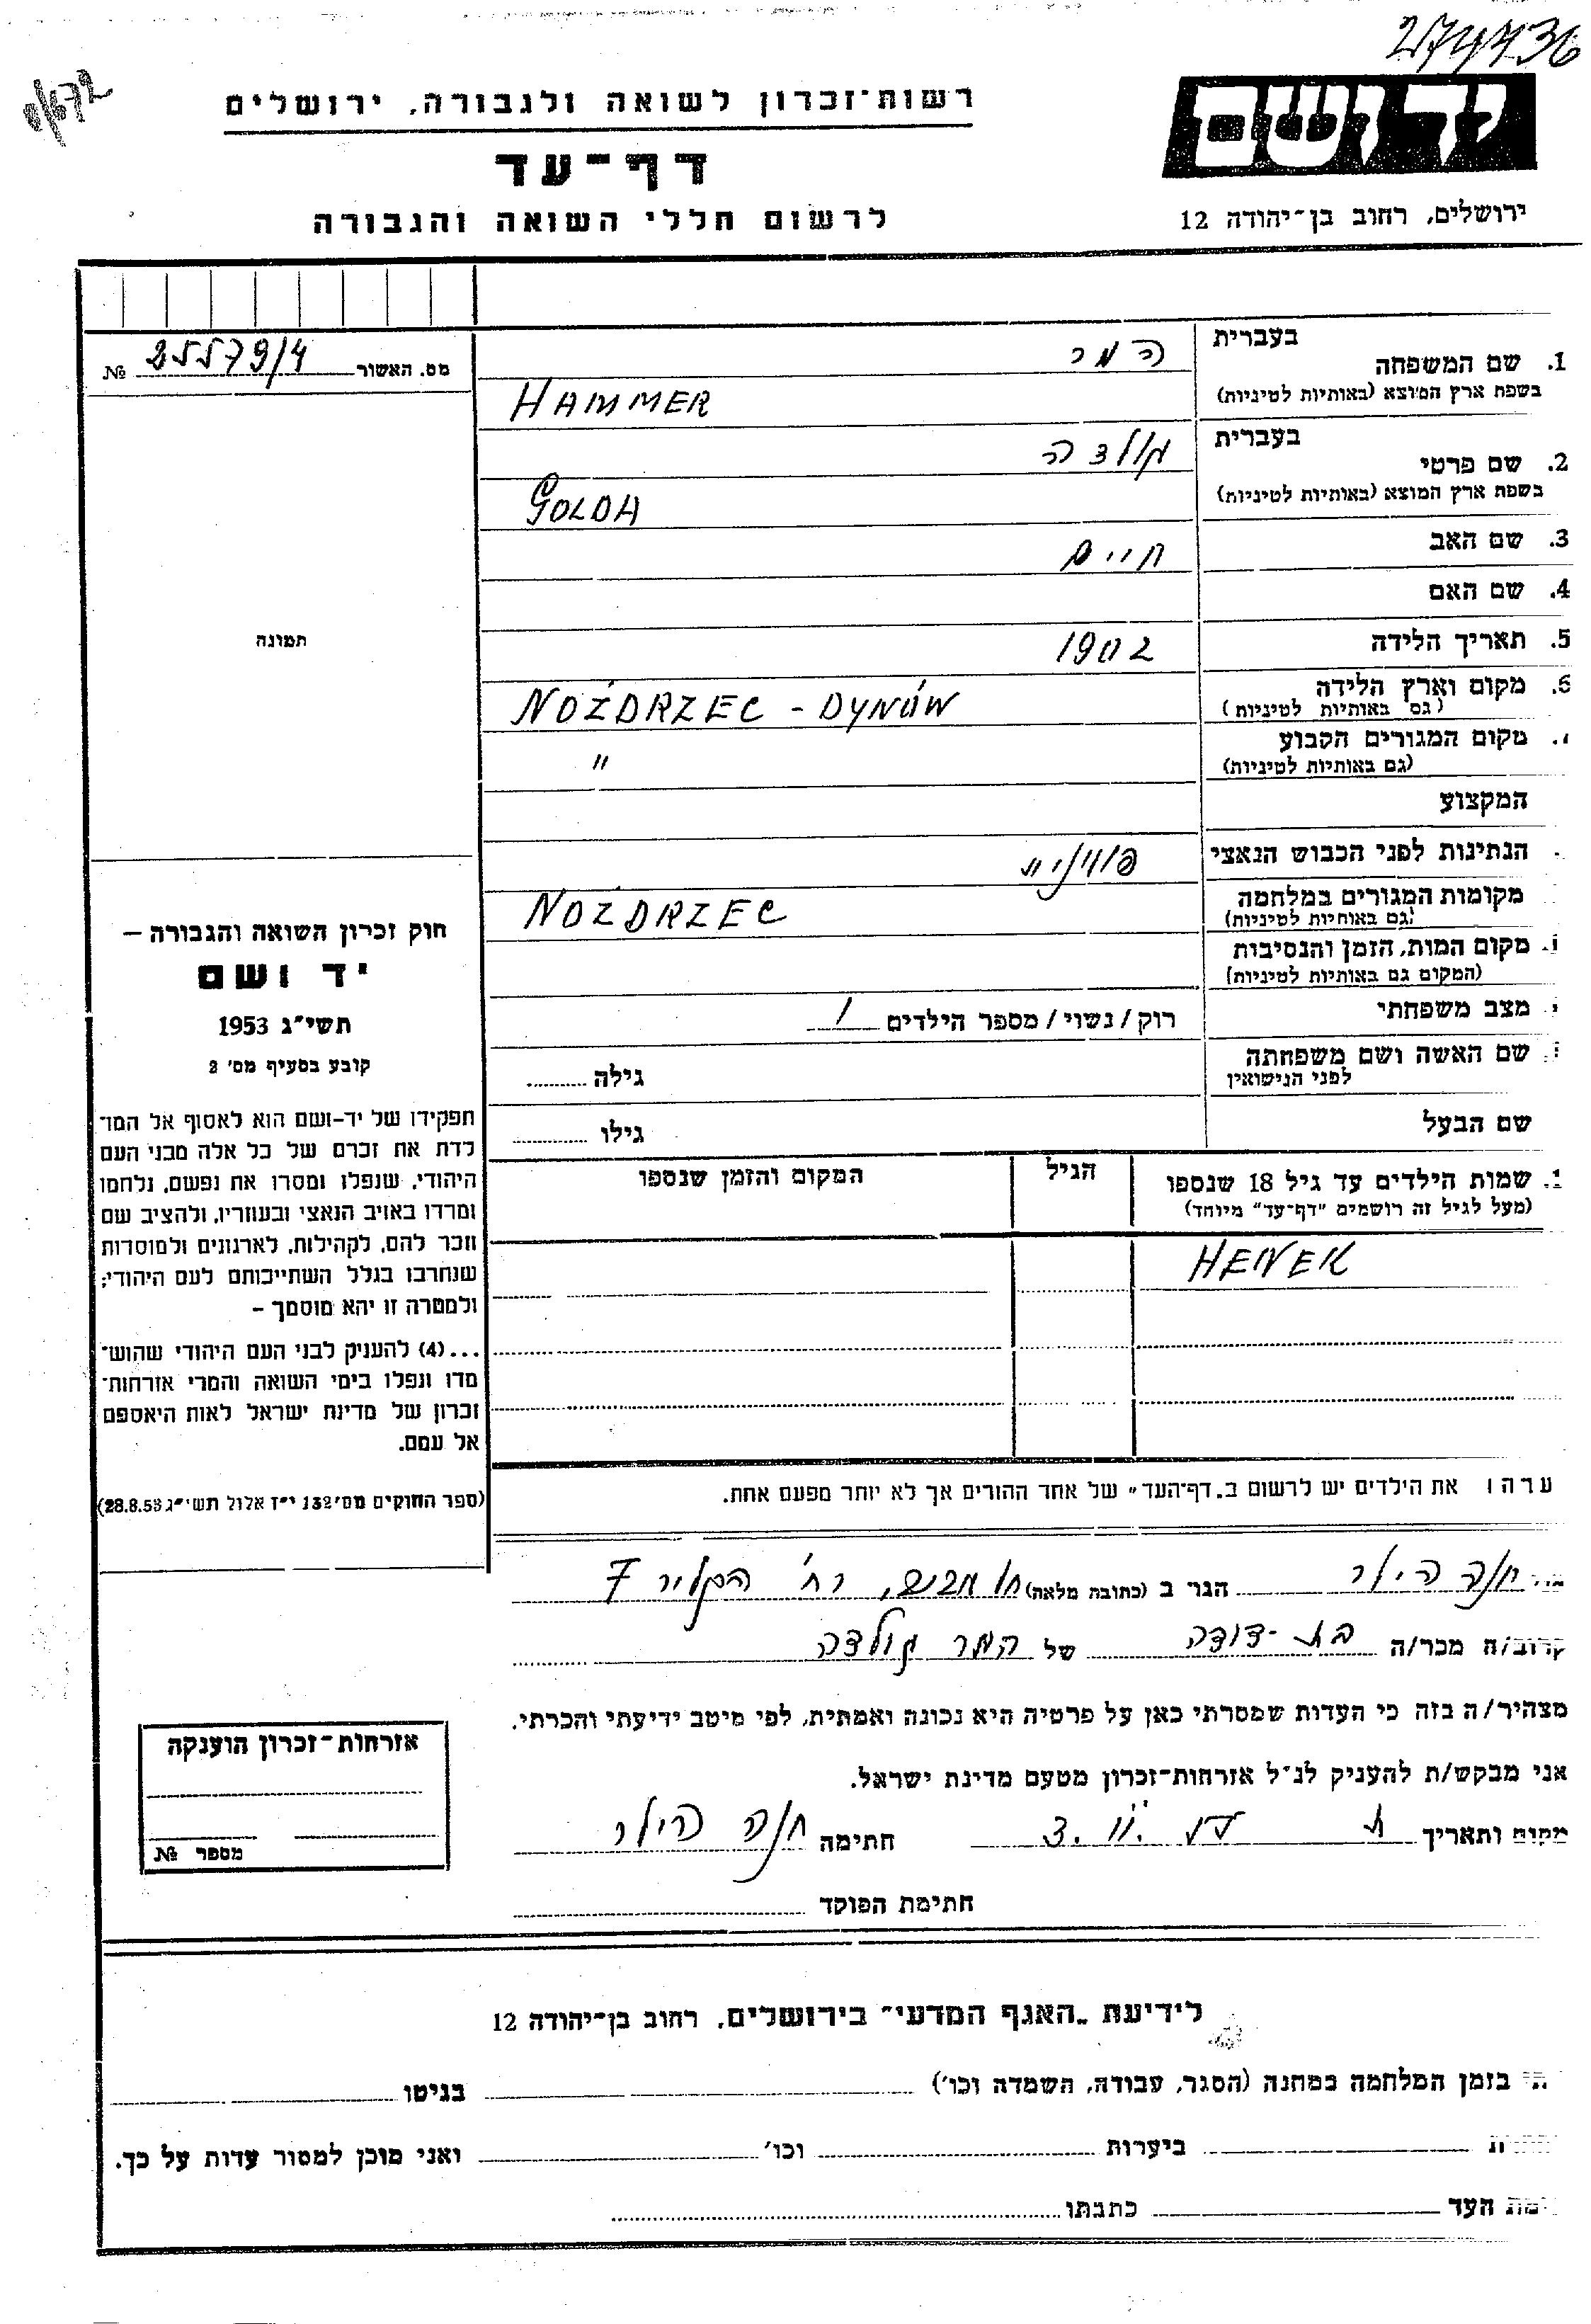 274736
רשות־זכרון לשואה ולגבורה, ירושלים
דף־עד
לרשום חללי השואה והגבורה
יד ושם
ירושלים, רחוב בן־יהודה 12
בעברית
1. שם המשפחה המר
בשפת ארץ המוצא (באותיות לטיניות) HAMMER
בעברית
2. שם פרטי גולדה
בשפת ארץ המוצא (באותיות לטיניות) GOLDA
3. שם האב חיים
4. שם האם
5. תאריך הלידה 1902
6. מקום וארץ הלידה NOŻDRZEC - DYNÓW
(גם באותיות לטיניות)
מקום המגורים הקבוע "
(גם באותיות לטיניות)
המקצוע
הנתינות לפני הכבוש הנאצי פולנית
מקומות המגורים במלחמה NOŻDRZEC
(גם באותיות לטיניות)
מקום המות, הזמן והנסיבות
(המקום גם באותיות לטיניות)
מצב משפחתי רוק/נשוי/מספר הילדים 1
שם האשה ושם משפחתה גילה
לפני הנישואין
שם הבעל גילו
שמות הילדים עד גיל 18 שנספו הגיל המקום והזמן שנספו
(מעל לגיל זה רושמים "דף־עד" מיוחד)
HENEK
ערה ו את הילדים יש לרשום ב„דף־העד" של אחד ההורים אך לא יותר מפעם אחת.
מס. האשור 25579/4 №
תמונה
חוק זכרון השואה והגבורה –
יד ושם
תשי"ג 1953
קובע בסעיף מס' 2
תפקידו של יד-ושם הוא לאסוף אל המו־
לדת את זכרם של כל אלה מבני העם
היהודי, שנפלו ומסרו את נפשם, נלחמו
ומרדו באויב הנאצי ובעוזריו, ולהציב שם
וזכר להם, לקהילות, לארגונים ולמוסדות
שנחרבו בגלל השתייכותם לעם היהודי;
ולמטרה זו יהא מוסמך –
...(4) להעניק לבני העם היהודי שהוש־
מדו ונפלו בימי השואה והמרי אזרחות־
זכרון של מדינת ישראל לאות היאספם
אל עמם.
(ספר החוקים מס' 132 י"ז אלול תשי"ג 28.8.53)
חנה הילר הגר ב (כתובת מלאה) תל אביב, רח' הקליר 7
קרוב/ה מכר/ה בת-דודה של המר גולדה
מצהיר/ה בזה כי העדות שמסרתי כאן על פרטיה היא נכונה ואמתית, לפי מיטב ידיעתי והכרתי.
אני מבקש/ת להעניק לנ"ל אזרחות־זכרון מטעם מדינת ישראל.
מקום ותאריך חתימה חנה הילר
חתימת הפוקד
אזרחות־זכרון הוענקה
מספר №
לידיעת „האגף המדעי" בירושלים, רחוב בן־יהודה 12
בזמן המלחמה במחנה (הסגר, עבודה, השמדה וכו') בגיטו
ביערות וכו' ואני מוכן למסור עדות על כך.
העד כתבתו